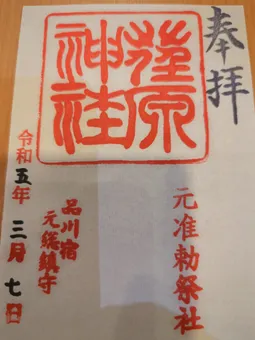 奉拝
荏原神社
元准勅祭社
品川宿
元総鎮守
令和五年三月七日